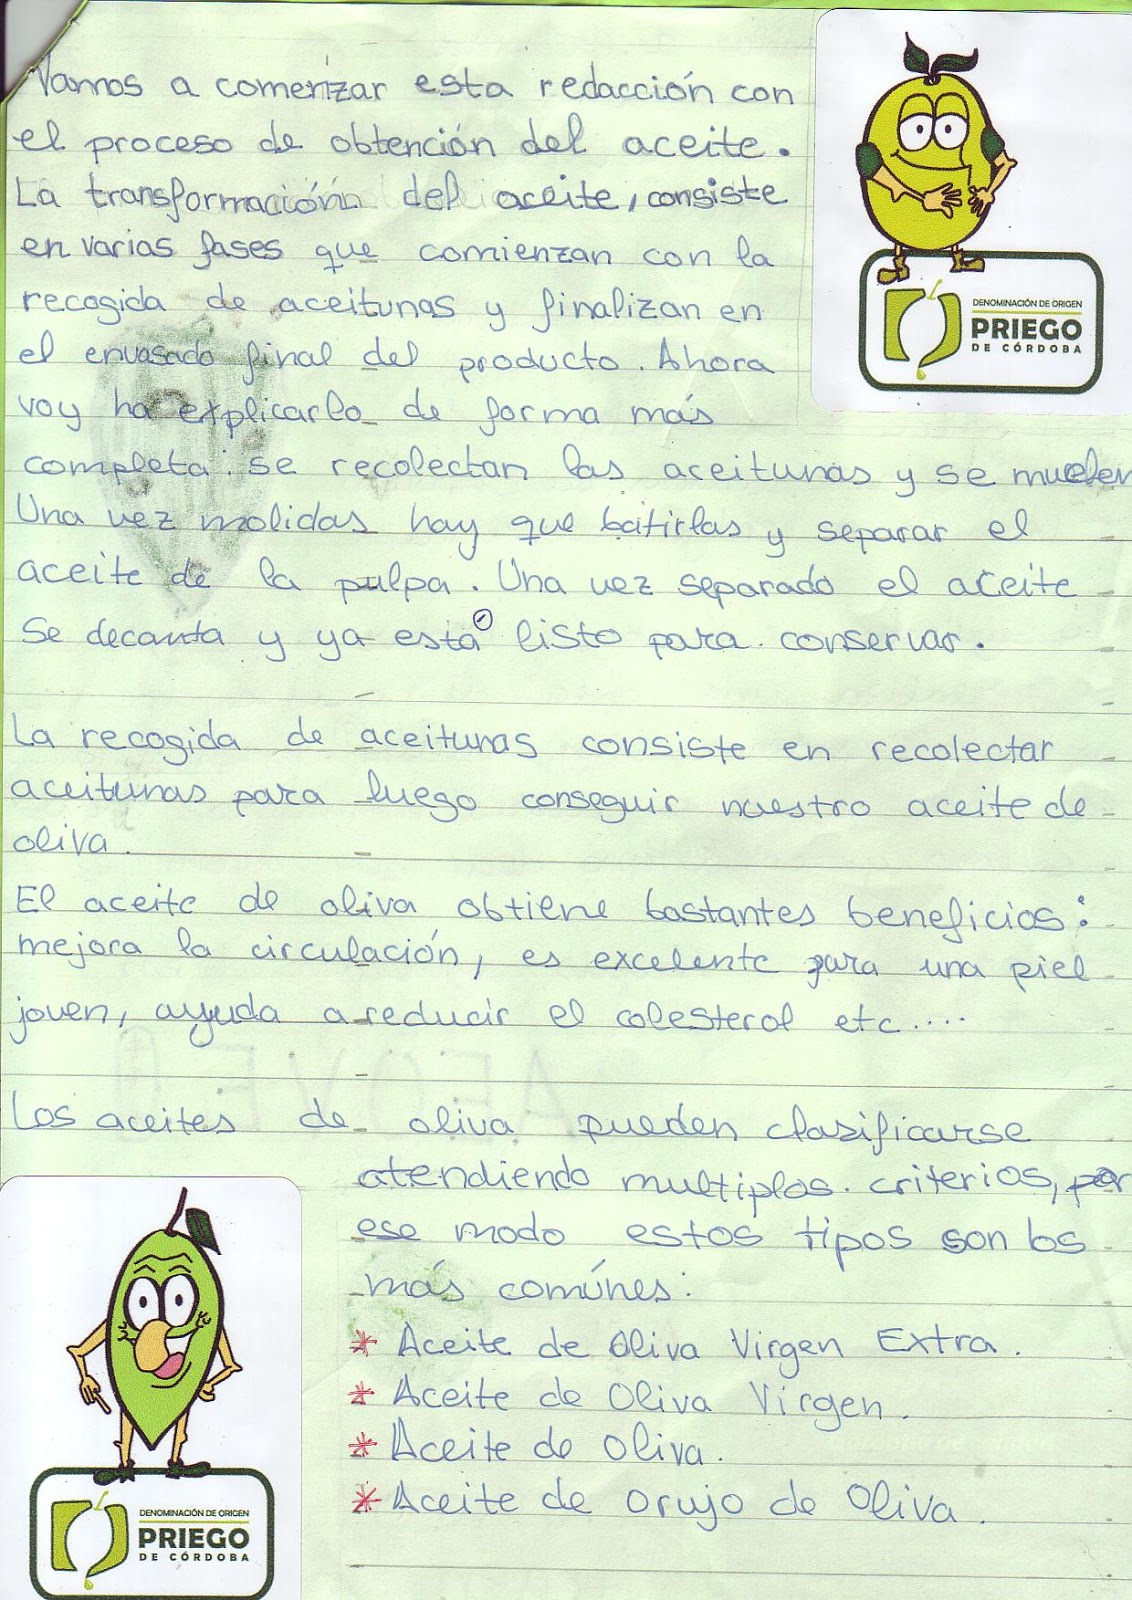 Vamos a comenzar esta redacción con
el proceso de obtención del aceite.
La transformación del aceite, consiste
en varias fases que comienzan con la
recogida de aceitunas y finalizan en
el envasado final del producto. Ahora
voy ha explicarlo de forma más
completa: se recolectan las aceitunas y se muelen
Una vez molidas hay que batirlas y separar el
aceite de la pulpa. Una vez separado el aceite
se decanta y ya está listo para conservar.
DENOMINACIÓN DE ORIGEN
PRIEGO
DE CÓRDOBA
La recogida de aceitunas consiste en recolectar
aceitunas para luego conseguir nuestro aceite de
oliva.
El aceite de oliva obtiene bastantes beneficios:
mejora la circulación, es excelente para una piel
joven, ayuda a reducir el colesterol etc....
Los aceites de oliva pueden clasificarse
atendiendo multiplos criterios, por
ese modo estos tipos son los
más comúnes:
* Aceite de Oliva Virgen Extra.
* Aceite de Oliva Virgen.
* Aceite de Oliva.
* Aceite de orujo de Oliva.
DENOMINACIÓN DE ORIGEN
PRIEGO
DE CÓRDOBA